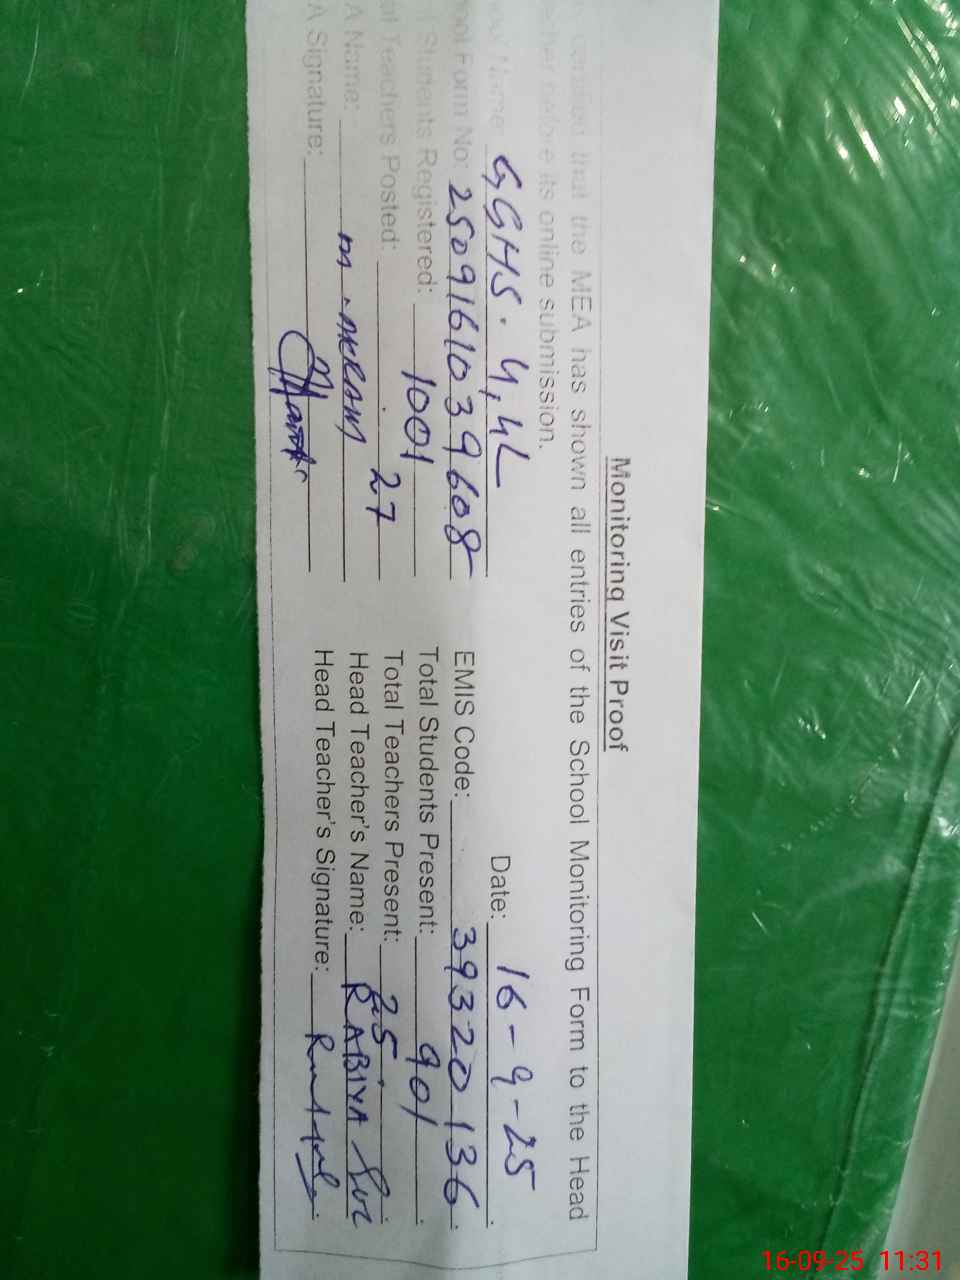 Monitoring Visit Proof
that the MEA has shown all entries of the School Monitoring Form to the Head
before its online submission.
Name: GGHS. 4,4L Date: 16-9-25
Form No: 2509161039608 EMIS Code: 39320136
Students Registered: 1001 Total Students Present: 901
Teachers Posted: 27 Total Teachers Present: 25
A Name: M. AKRAM Head Teacher's Name: RABIYA
A Signature: Head Teacher's Signature:
16-09-25 11:31